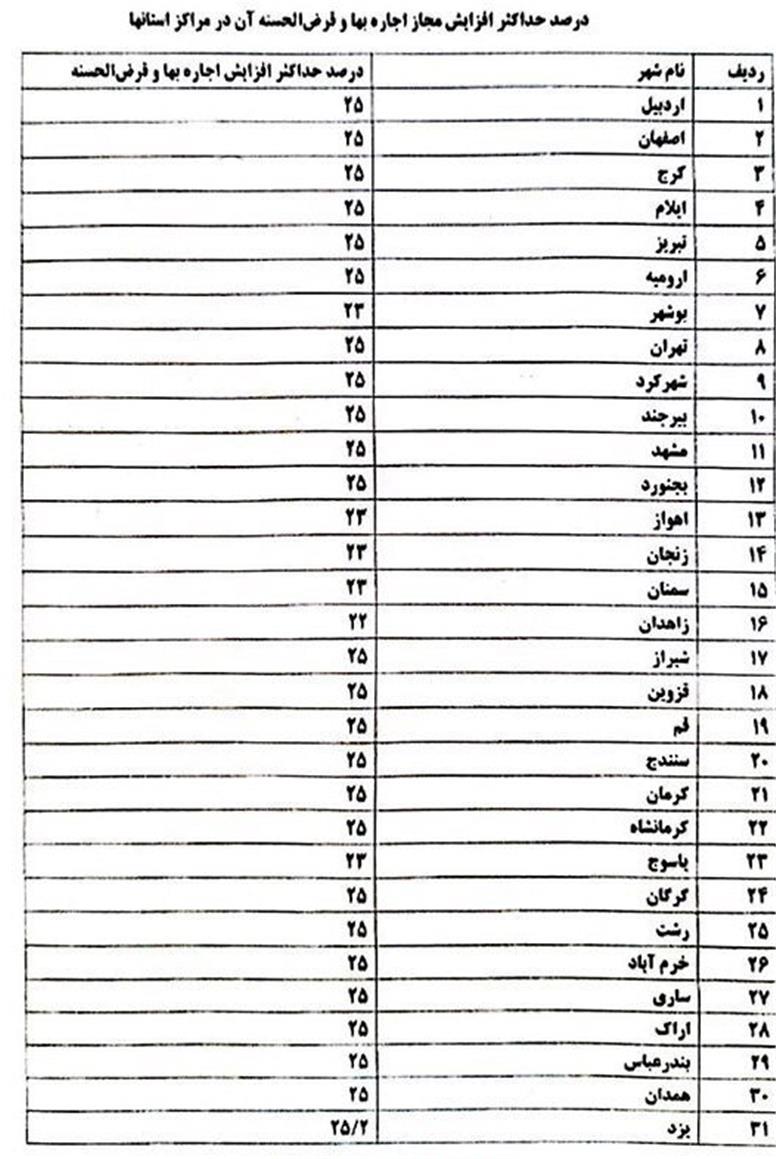 درصد حداکثر افزایش مجاز اجاره بها و قرض‌الحسنه آن در مراکز استانها
ردیف نام شهر درصد حداکثر افزایش اجاره بها و قرض‌الحسنه
۱ اردبیل ۲۵
۲ اصفهان ۲۵
۳ کرج ۲۵
۴ ایلام ۲۵
۵ تبریز ۲۵
۶ ارومیه ۲۵
۷ بوشهر ۲۳
۸ تهران ۲۵
۹ شهرکرد ۲۵
۱۰ بیرجند ۲۵
۱۱ مشهد ۲۵
۱۲ بجنورد ۲۵
۱۳ اهواز ۲۳
۱۴ زنجان ۲۳
۱۵ سمنان ۲۳
۱۶ زاهدان ۲۲
۱۷ شیراز ۲۵
۱۸ قزوین ۲۵
۱۹ قم ۲۵
۲۰ سنندج ۲۵
۲۱ کرمان ۲۵
۲۲ کرمانشاه ۲۵
۲۳ یاسوج ۲۳
۲۴ گرگان ۲۵
۲۵ رشت ۲۵
۲۶ خرم آباد ۲۵
۲۷ ساری ۲۵
۲۸ اراک ۲۵
۲۹ بندرعباس ۲۵
۳۰ همدان ۲۵
۳۱ یزد ۲۵/۲